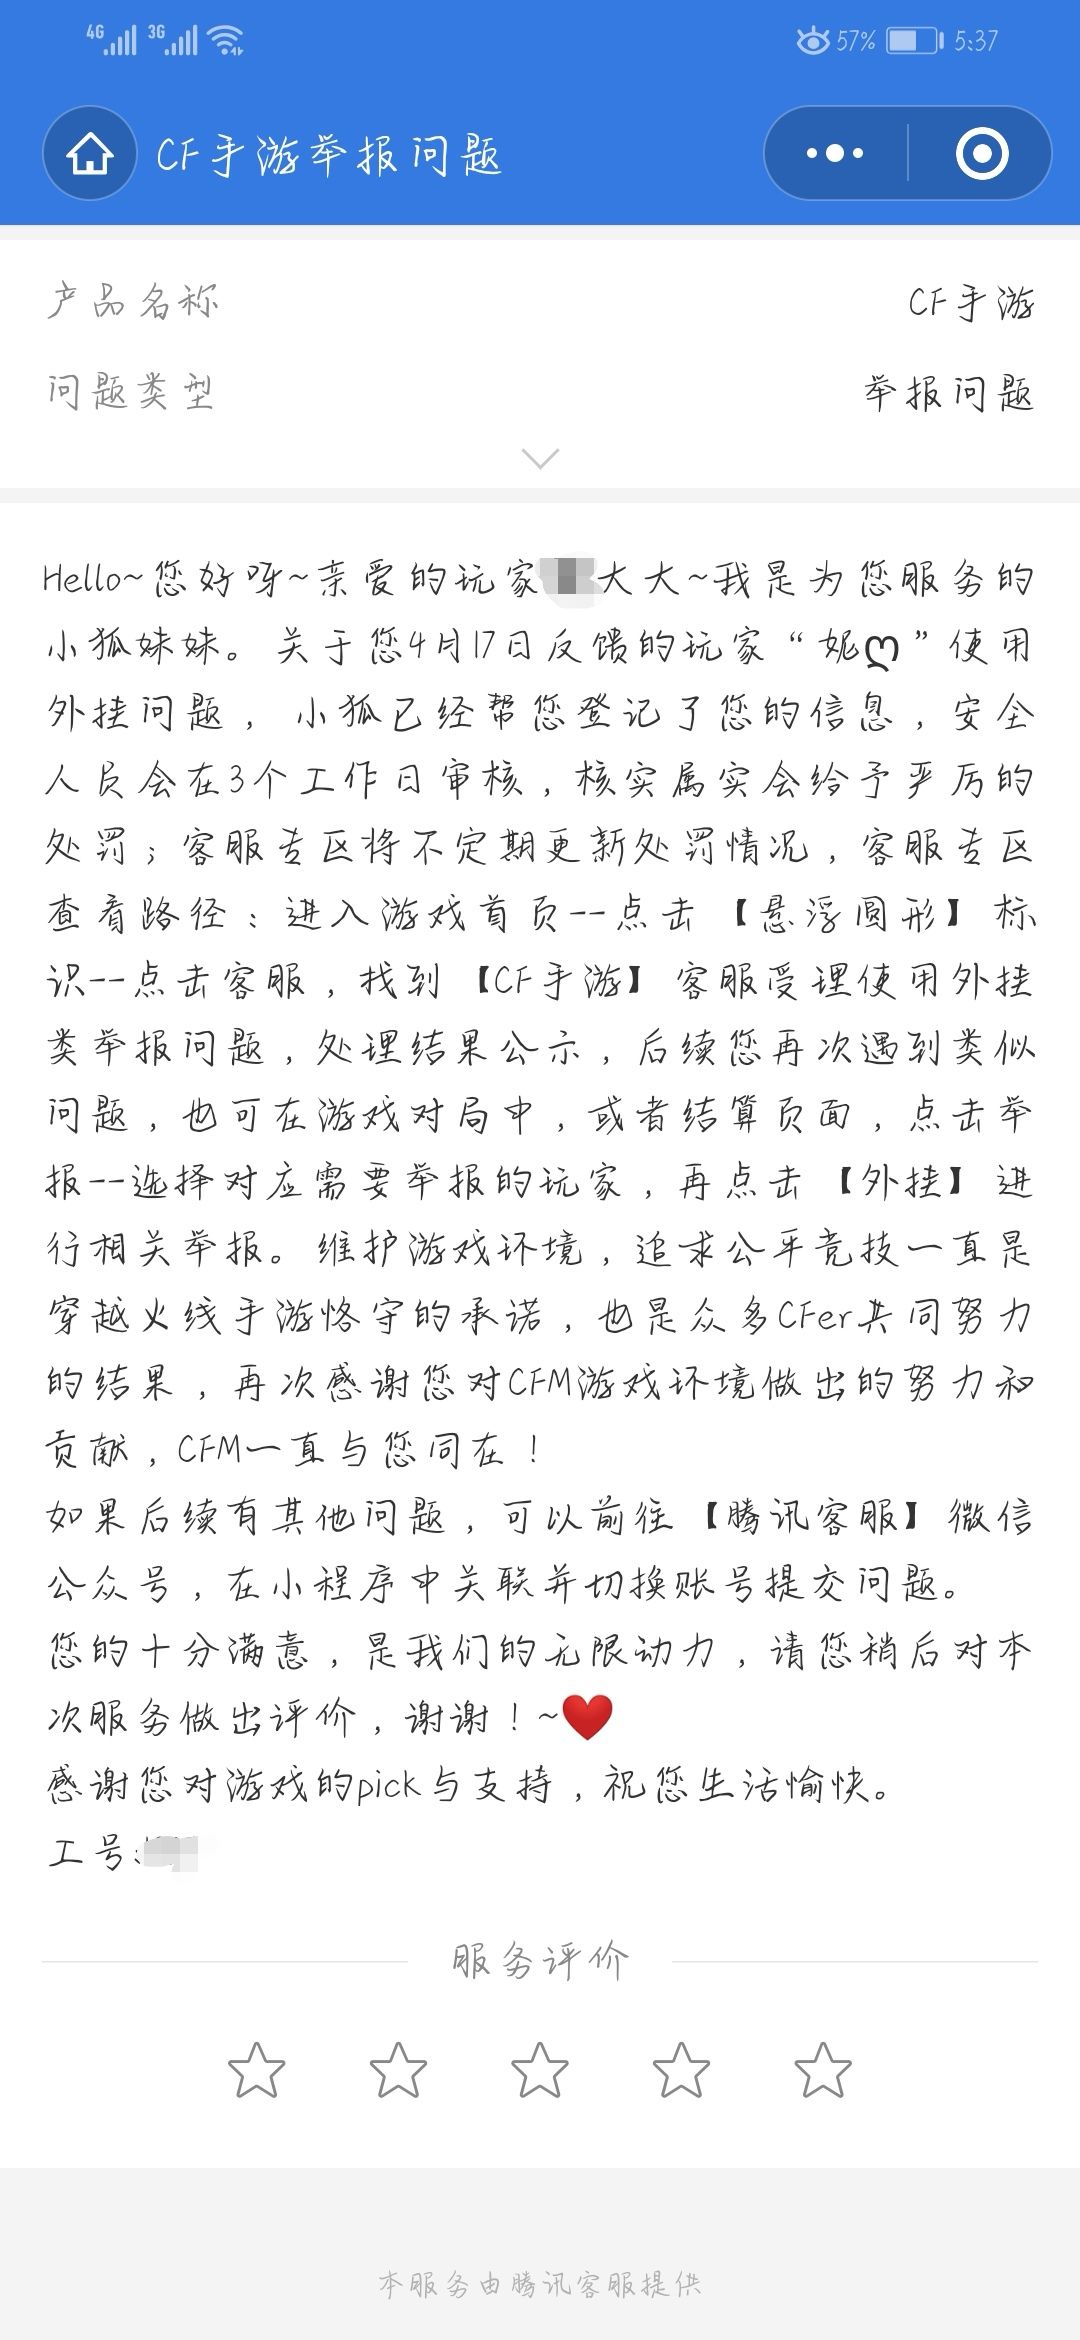 4G 3G 57% 5:37
CF手游举报问题
产品名称 CF手游
问题类型 举报问题
Hello~您好呀~亲爱的玩家 大大~我是为您服务的
小狐妹妹。关于您4月17日反馈的玩家“妮ლ”使用
外挂问题，小狐已经帮您登记了您的信息，安全
人员会在3个工作日审核，核实属实会给予严厉的
处罚；客服专区将不定期更新处罚情况，客服专区
查看路径：进入游戏首页--点击【悬浮圆形】标
识--点击客服，找到【CF手游】客服受理使用外挂
类举报问题，处理结果公示，后续您再次遇到类似
问题，也可在游戏对局中，或者结算页面，点击举
报--选择对应需要举报的玩家，再点击【外挂】进
行相关举报。维护游戏环境，追求公平竞技一直是
穿越火线手游恪守的承诺，也是众多CFer共同努力
的结果，再次感谢您对CFM游戏环境做出的努力和
贡献，CFM一直与您同在！
如果后续有其他问题，可以前往【腾讯客服】微信
公众号，在小程序中关联并切换账号提交问题。
您的十分满意，是我们的无限动力，请您稍后对本
次服务做出评价，谢谢！~❤️
感谢您对游戏的pick与支持，祝您生活愉快。
工号:
服务评价
本服务由腾讯客服提供